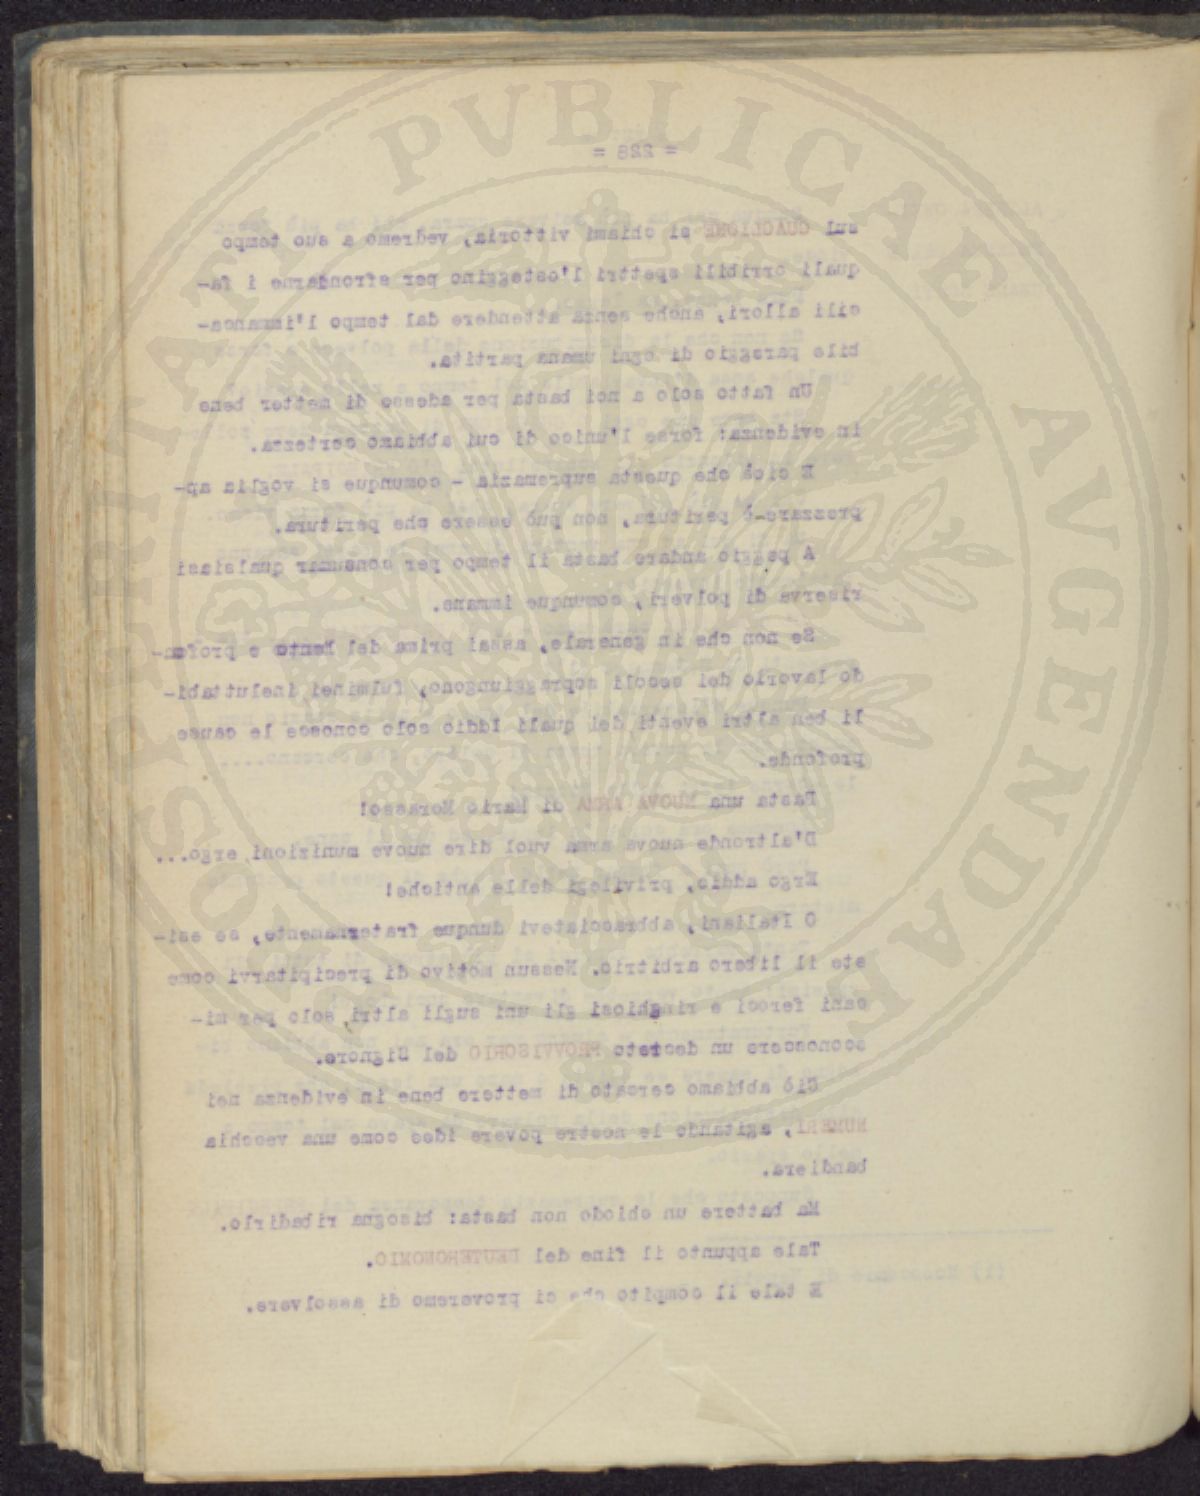 = 228 =
sul GUAGLIONE si chiami vittoria, vedremo a suo tempo
quali orribili spettri l'osteggino per sfrondarne i fa-
cili allori, anche senza attendere dal tempo l'immanca-
bile pareggio di ogni umana partita.
Un fatto solo a noi basta per adesso di metter bene
in evidenza: forse l'unico di cui abbiamo certezza.
E cioè che questa supremazia - comunque si voglia ap-
prezzare-è peritura, non può essere che peritura.
A peggio andare basta il tempo per consumar qualsiasi
riserva di polveri, comunque immane.
Se non che in generale, assai prima del lento e profon-
do lavorio dei secoli sopraggiungono, fulminei ineluttabi-
li ben altri eventi dei quali Iddio solo conosce le cause
profonde.
Basta una NUOVA ARMA di Mario Morasso!
D'altronde nuova arma vuol dire nuove munizioni, ergo...
Ergo addio, privilegi delle antiche!
O Italiani, abbracciatevi dunque fraternamente, se esi-
ste il libero arbitrio. Nessun motivo di precipitarvi come
cani feroci e ringhiosi gli uni sugli altri, solo per mi-
sconoscere un decreto PROVVISORIO del Signore.
Ciò abbiamo cercato di mettere bene in evidenza nei
NUMERI, agitando le nostre povere idee come una vecchia
bandiera.
Ma battere un chiodo non basta: bisogna ribadirlo.
Tale appunto il fine del DEUTERONOMIO.
E tale il compito che ci proveremo di assolvere.
PROSPERITATI PVBLICAE AVGENDAE